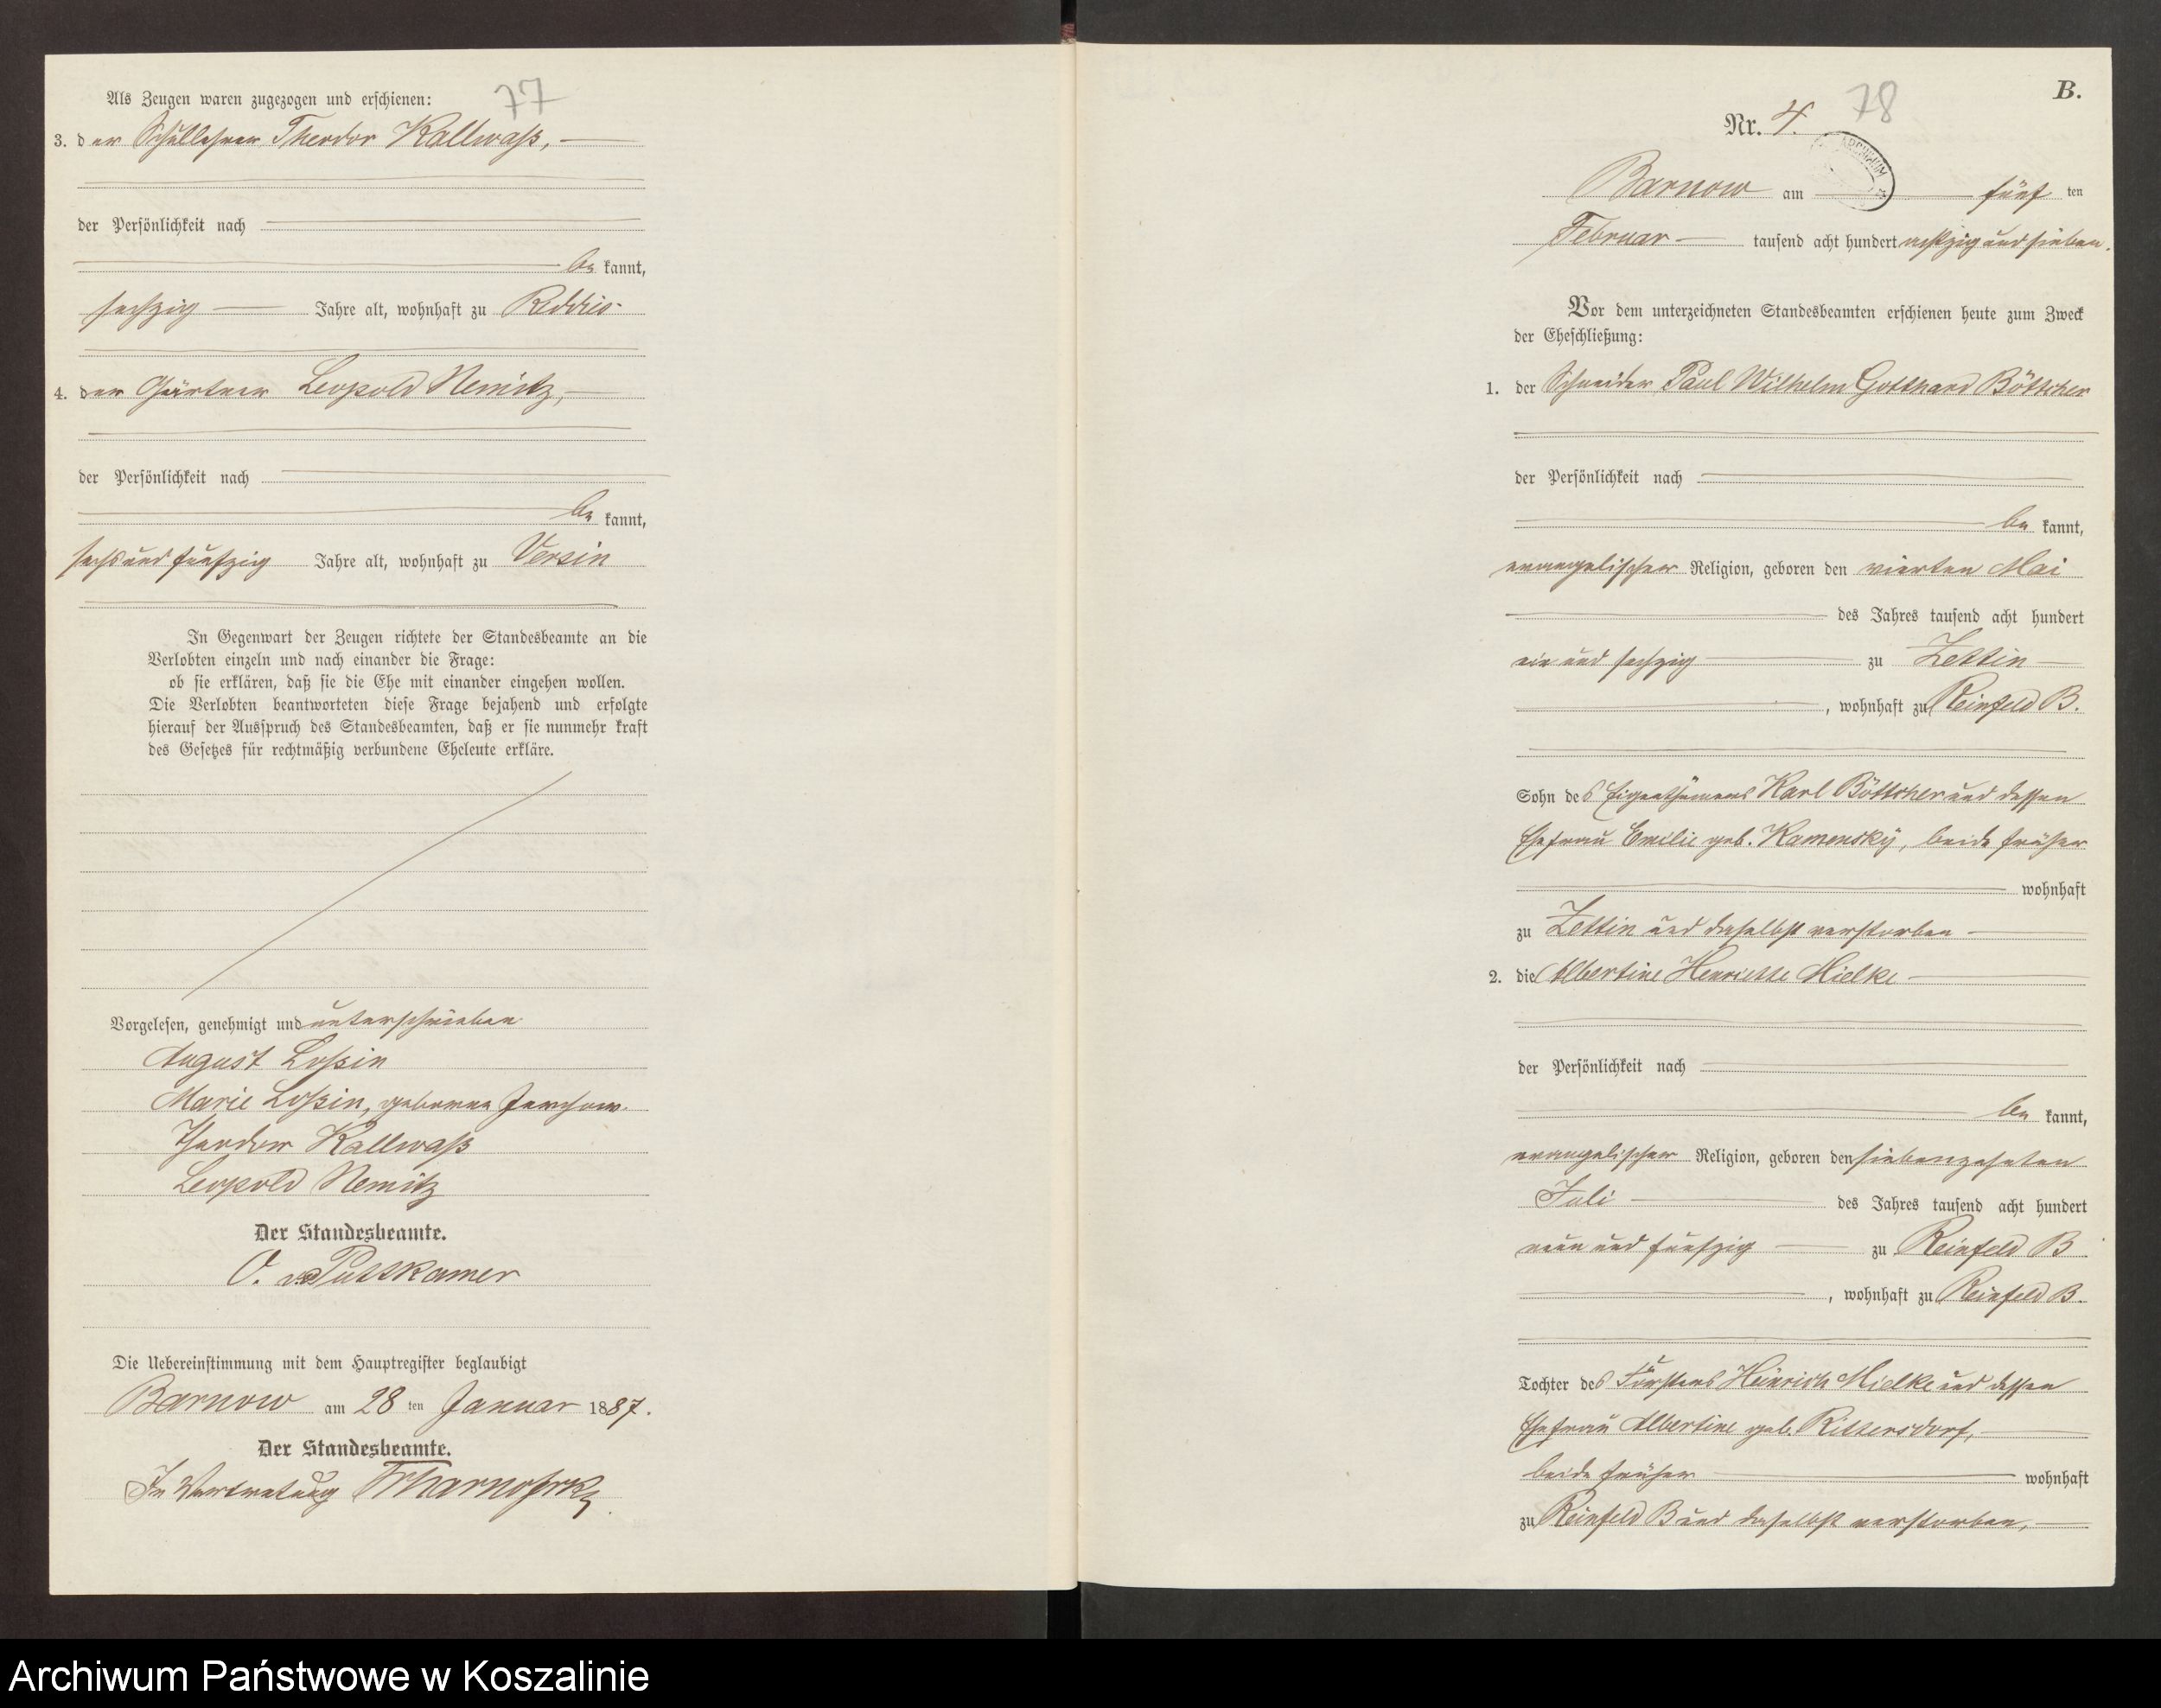 77
Als Zeugen waren zugezogen und erschienen:
3. der Schullehrer Theodor Kallwaß,
der Persönlichkeit nach
bekannt,
sechzig Jahre alt, wohnhaft zu Reddies
4. der Gärtner Leopold Nemitz,
der Persönlichkeit nach
bekannt,
sechs und fünfzig Jahre alt, wohnhaft zu Versin
In Gegenwart der Zeugen richtete der Standesbeamte an die
Verlobten einzeln und nach einander die Frage:
ob sie erklären, daß sie die Ehe mit einander eingehen wollen.
Die Verlobten beantworteten diese Frage bejahend und erfolgte
hierauf der Ausspruch des Standesbeamten, daß er sie nunmehr kraft
des Gesetzes für rechtmäßig verbundene Eheleute erkläre.
Vorgelesen, genehmigt und unterschrieben
August Loßin
Marie Loßin, geborene
Theodor Kallwaß
Leopold Nemitz
Der Standesbeamte.
O. v. Puttkamer
Die Uebereinstimmung mit dem Hauptregister beglaubigt
Barnow am 28 ten Januar 1887.
Der Standesbeamte.
In Vertretung
B.
78
Nr. 4.
ARCHIWUM
Barnow am fünf ten
Februar tausend acht hundert achtzig und sieben.
Vor dem unterzeichneten Standesbeamten erschienen heute zum Zweck
der Eheschließung:
1. der Schneider Paul Wilhelm Gotthard Böttcher
der Persönlichkeit nach
bekannt,
evangelischer Religion, geboren den vierten Mai
des Jahres tausend acht hundert
ein und sechzig zu Zettin
, wohnhaft zu Reinfeld B.
Sohn des Eigenthümers Karl Böttcher und dessen
Ehefrau Emilie geb. Kamensky, beide früher
wohnhaft
zu Zettin und daselbst verstorben
2. die Albertine Henriette Mielke
der Persönlichkeit nach
bekannt,
evangelischer Religion, geboren den siebenzehnten
Juli des Jahres tausend acht hundert
neun und fünfzig zu Reinfeld B
, wohnhaft zu Reinfeld B.
Tochter des Försters Heinrich Mielke und dessen
Ehefrau Albertine geb. Rittersdorf,
beide früher wohnhaft
zu Reinfeld B und daselbst verstorben,
Archiwum Państwowe w Koszalinie